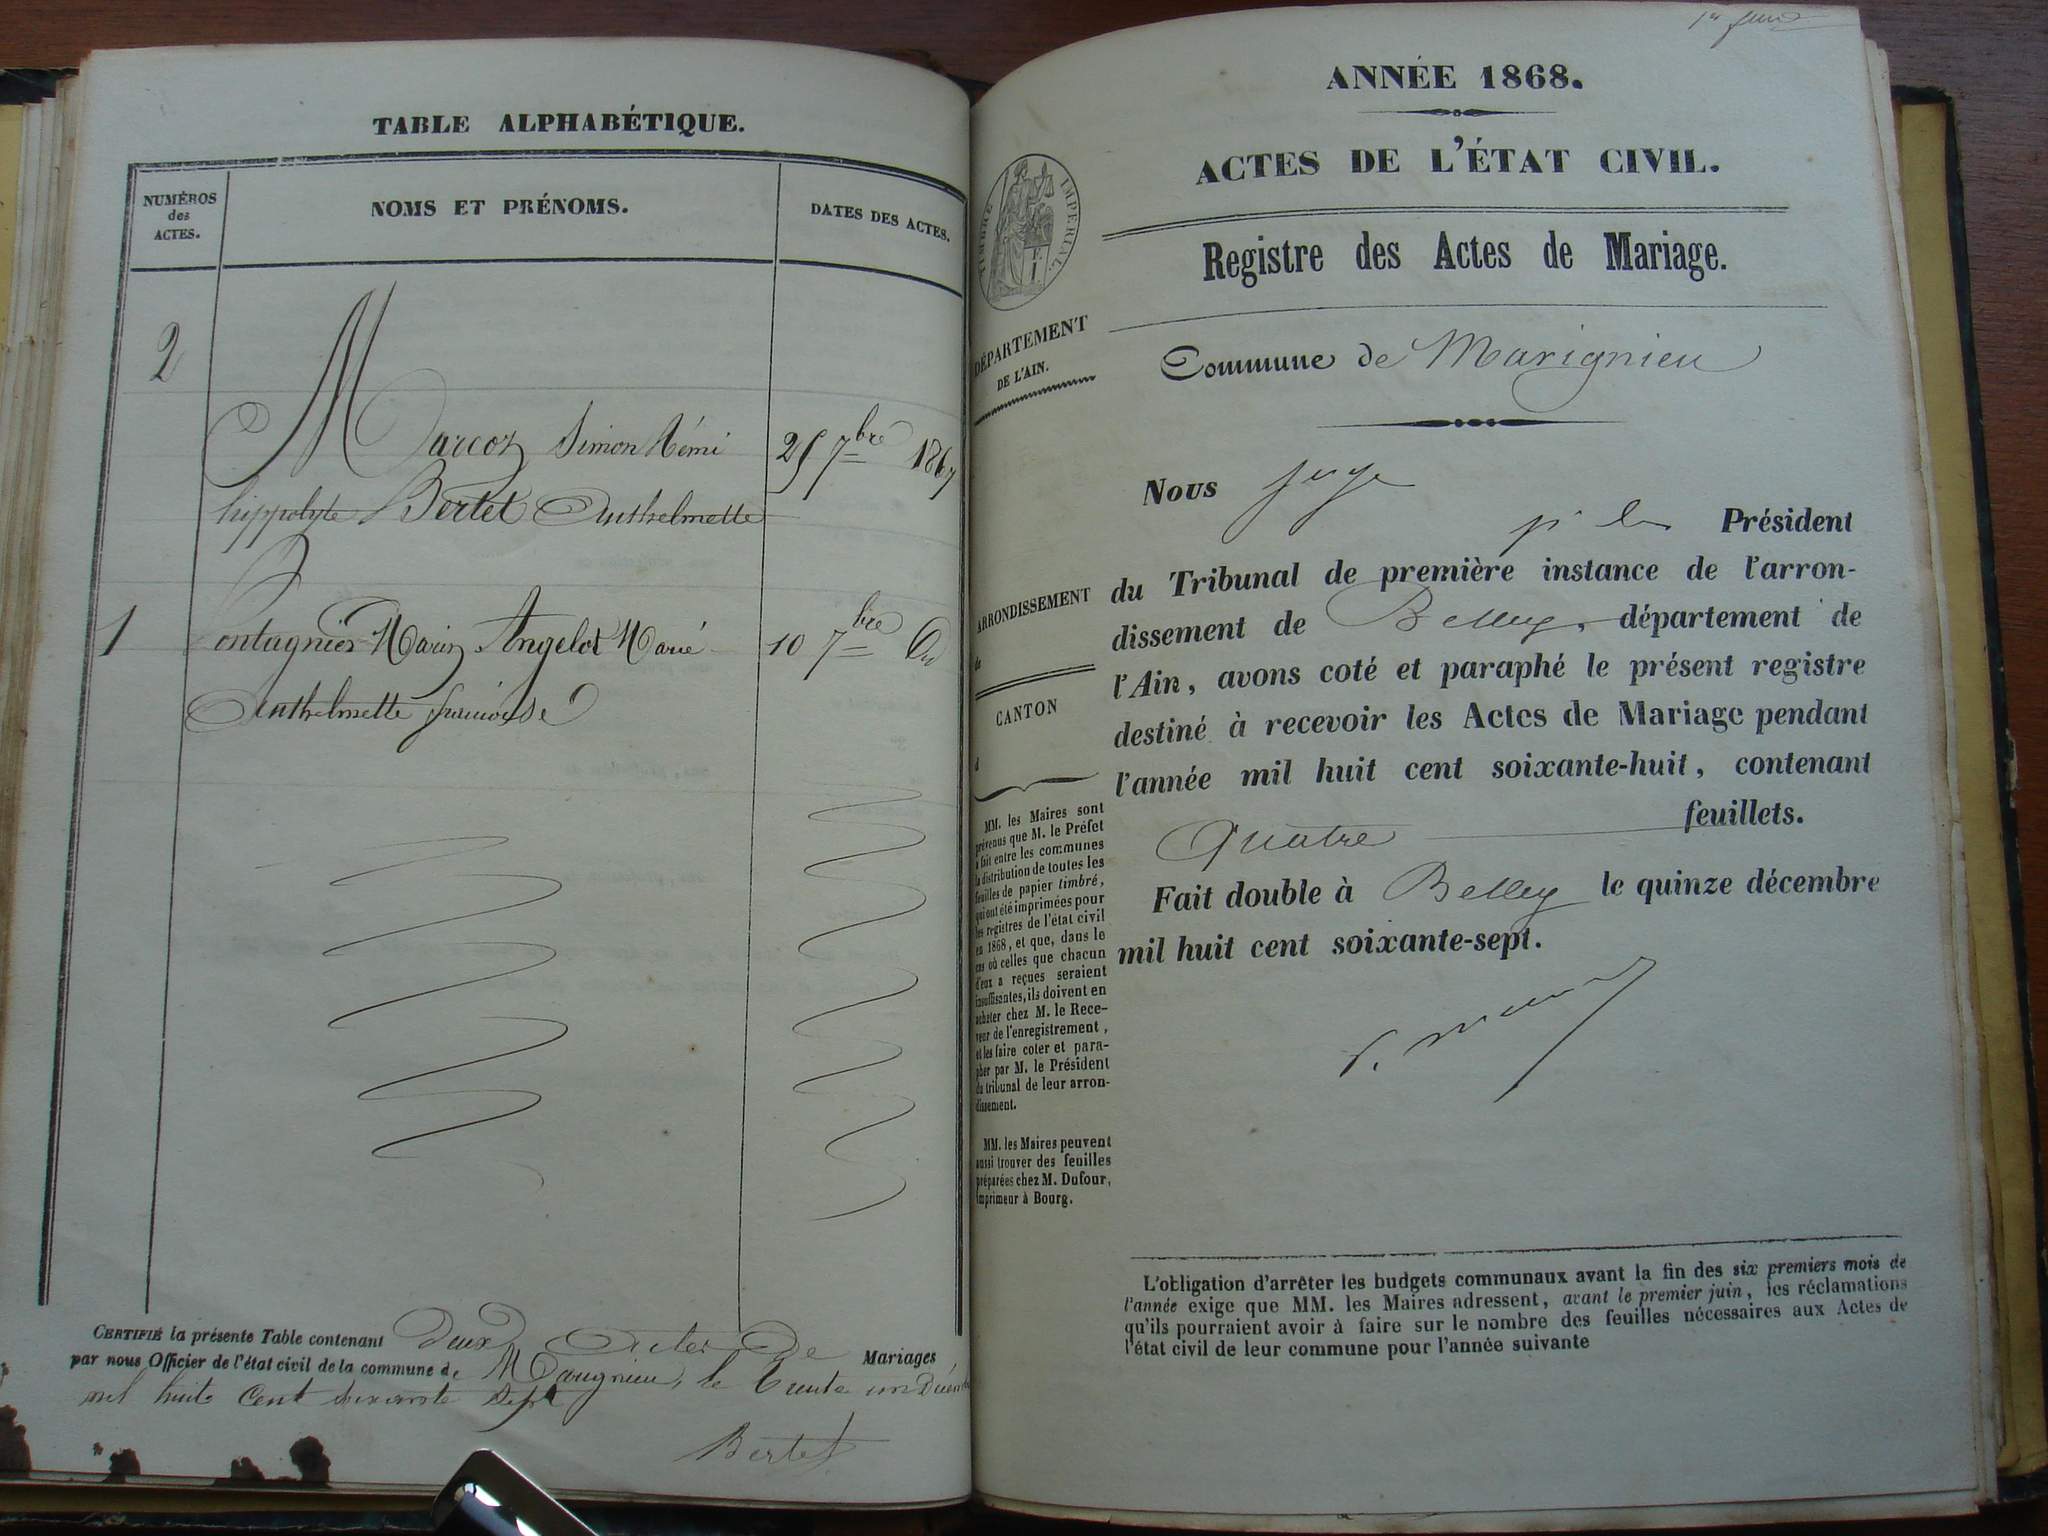 TABLE ALPHABÉTIQUE.
NUMÉROS
des
ACTES.
NOMS ET PRÉNOMS.
DATES DES ACTES.
2
Marcoz Simon Rémi
25 7bre 1867
hippolyte Bertet Anthelmette
1
Marin Angelot Marie
10 7bre
Anthelmette
CERTIFIÉ la présente Table contenant Deux Actes De Mariages
par nous Officier de l'état civil de la commune de Marignieu, le trente un
mil huit cent soixante sept
Bertet
1er
ANNÉE 1868.
ACTES DE L'ÉTAT CIVIL.
TIMBRE IMPÉRIAL
Registre des Actes de Mariage.
DÉPARTEMENT
DE L'AIN.
Commune de Marignieu
Nous juge
Président
du Tribunal de première instance de l'arron-
ARRONDISSEMENT
dissement de Belley, département de
l'Ain, avons coté et paraphé le présent registre
CANTON
destiné à recevoir les Actes de Mariage pendant
d
l'année mil huit cent soixante-huit, contenant
Quatre feuillets.
Fait double à Belley le quinze décembre
mil huit cent soixante-sept.
MM. les Maires sont
prévenus que M. le Préfet
a fait entre les communes
la distribution de toutes les
feuilles de papier timbré,
qui ont été imprimées pour
les registres de l'état civil
en 1868, et que, dans le
cas où celles que chacun
d'eux a reçues seraient
insuffisantes, ils doivent en
acheter chez M. le Rece-
veur de l'enregistrement,
et les faire coter et para-
pher par M. le Président
du tribunal de leur arron-
dissement.
MM. les Maires peuvent
aussi trouver des feuilles
préparées chez M. Dufour,
imprimeur à Bourg.
L'obligation d'arrêter les budgets communaux avant la fin des six premiers mois de
l'année exige que MM. les Maires adressent, avant le premier juin, les réclamations
qu'ils pourraient avoir à faire sur le nombre des feuilles nécessaires aux Actes de
l'état civil de leur commune pour l'année suivante